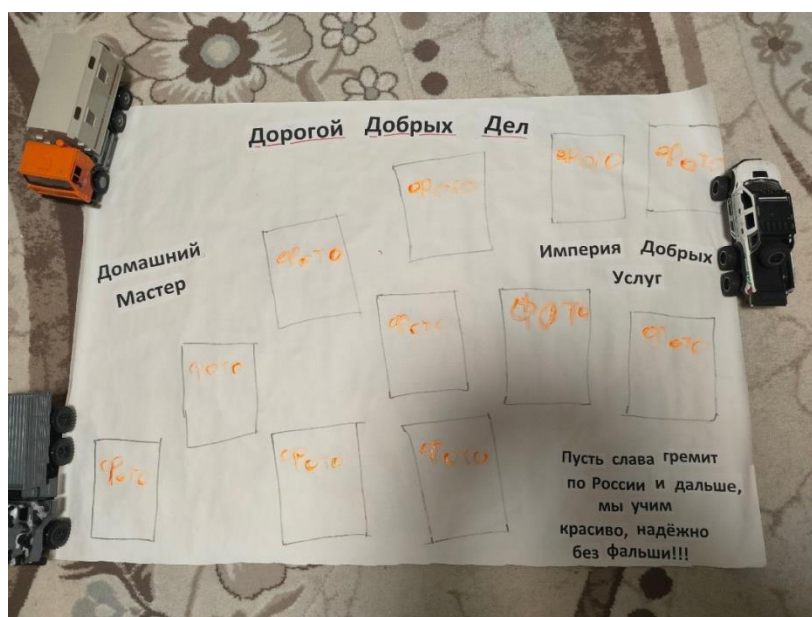 Дорогой Добрых Дел
фото
фото
фото
фото
Домашний
Мастер
Империя Добрых
Услуг
фото
Фото
фото
фото
фото
фото
фото
Пусть слава гремит
по России и дальше,
мы учим
красиво, надёжно
без фальши!!!